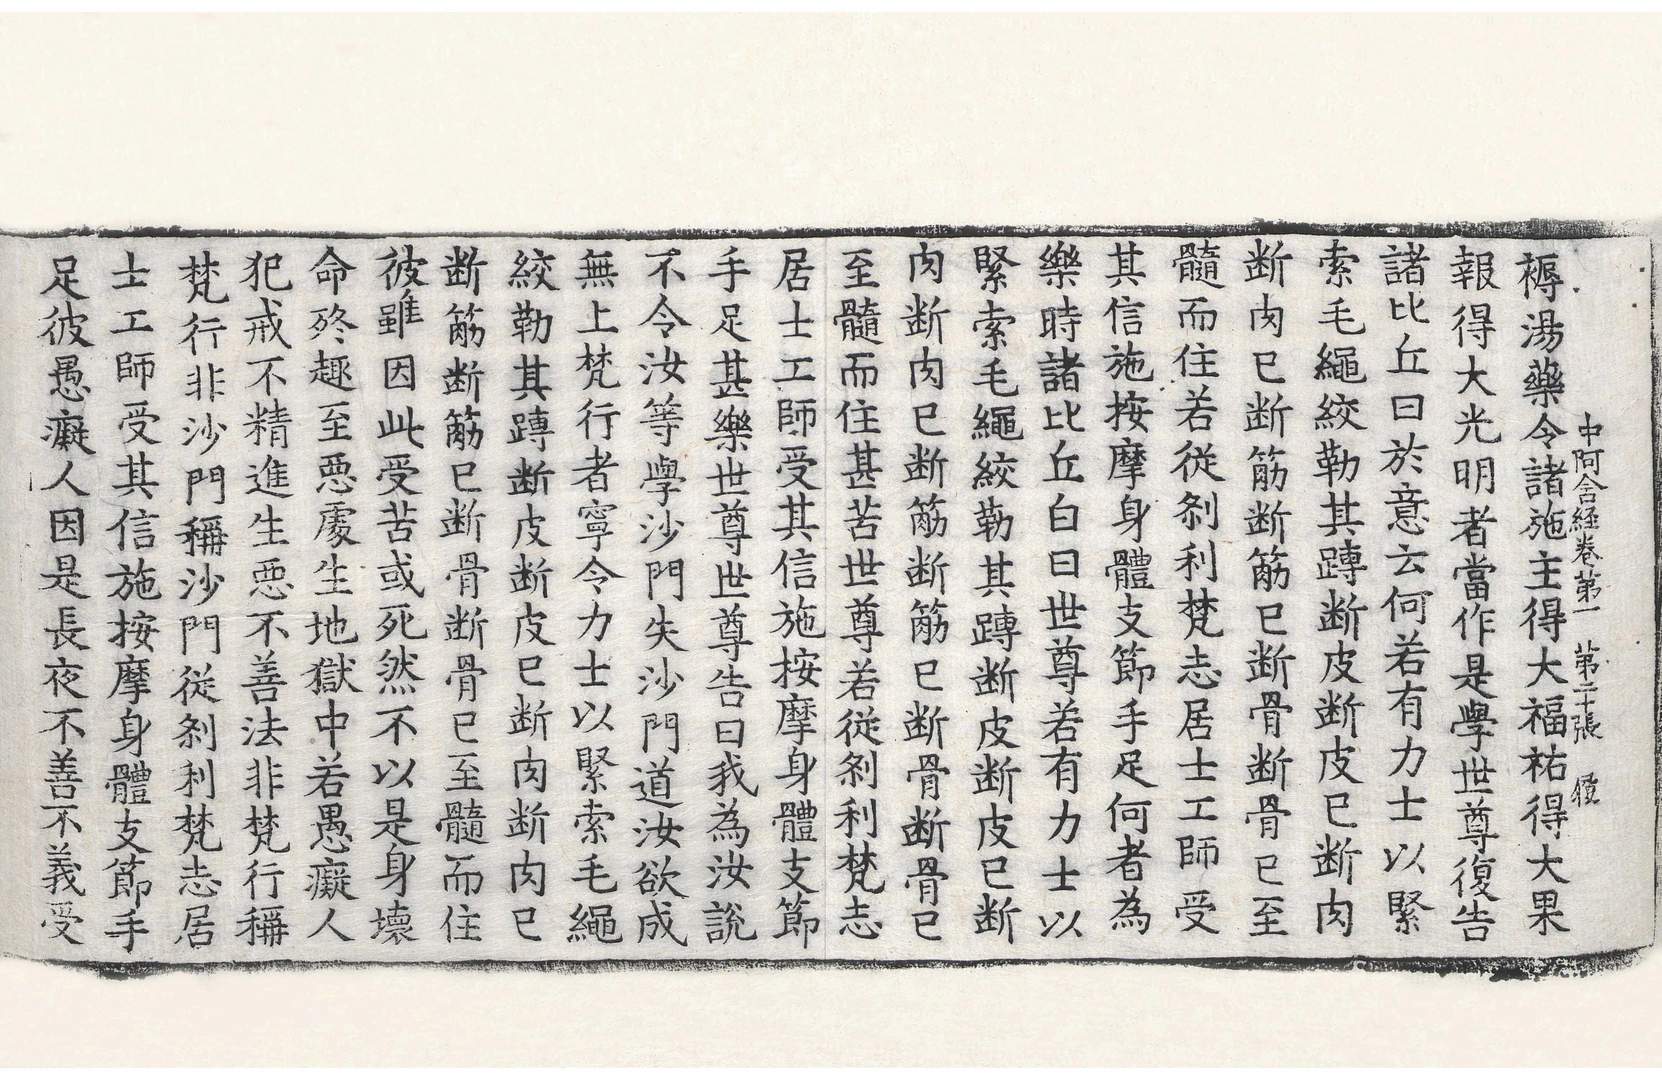 中阿含経卷第一 第二十張
褥湯藥令諸施主得大福祐得大果
報得大光明者當作是學世尊復告
諸比丘曰於意云何若有力士以緊
索毛繩絞勒其𨄔断皮断皮已断肉
断肉已断筋断筋已断骨断骨已至
髓而住若從剎利梵志居士工師受
其信施按摩身體支節手足何者為
樂時諸比丘白曰世尊若有力士以
緊索毛繩絞勒其𨄔断皮断皮已断
肉断肉已断筋断筋已断骨断骨已
至髓而住甚苦世尊若從剎利梵志
居士工師受其信施按摩身體支節
手足甚樂世尊世尊告曰我為汝說
不令汝等學沙門失沙門道汝欲成
無上梵行者寧令力士以緊索毛繩
絞勒其𨄔断皮断皮已断肉断肉已
断筋断筋已断骨断骨已至髓而住
彼雖因此受苦或死然不以是身壞
命終趣至惡處生地獄中若愚癡人
犯戒不精進生惡不善法非梵行稱
梵行非沙門稱沙門從剎利梵志居
士工師受其信施按摩身體支節手
足彼愚癡人因是長夜不善不義受